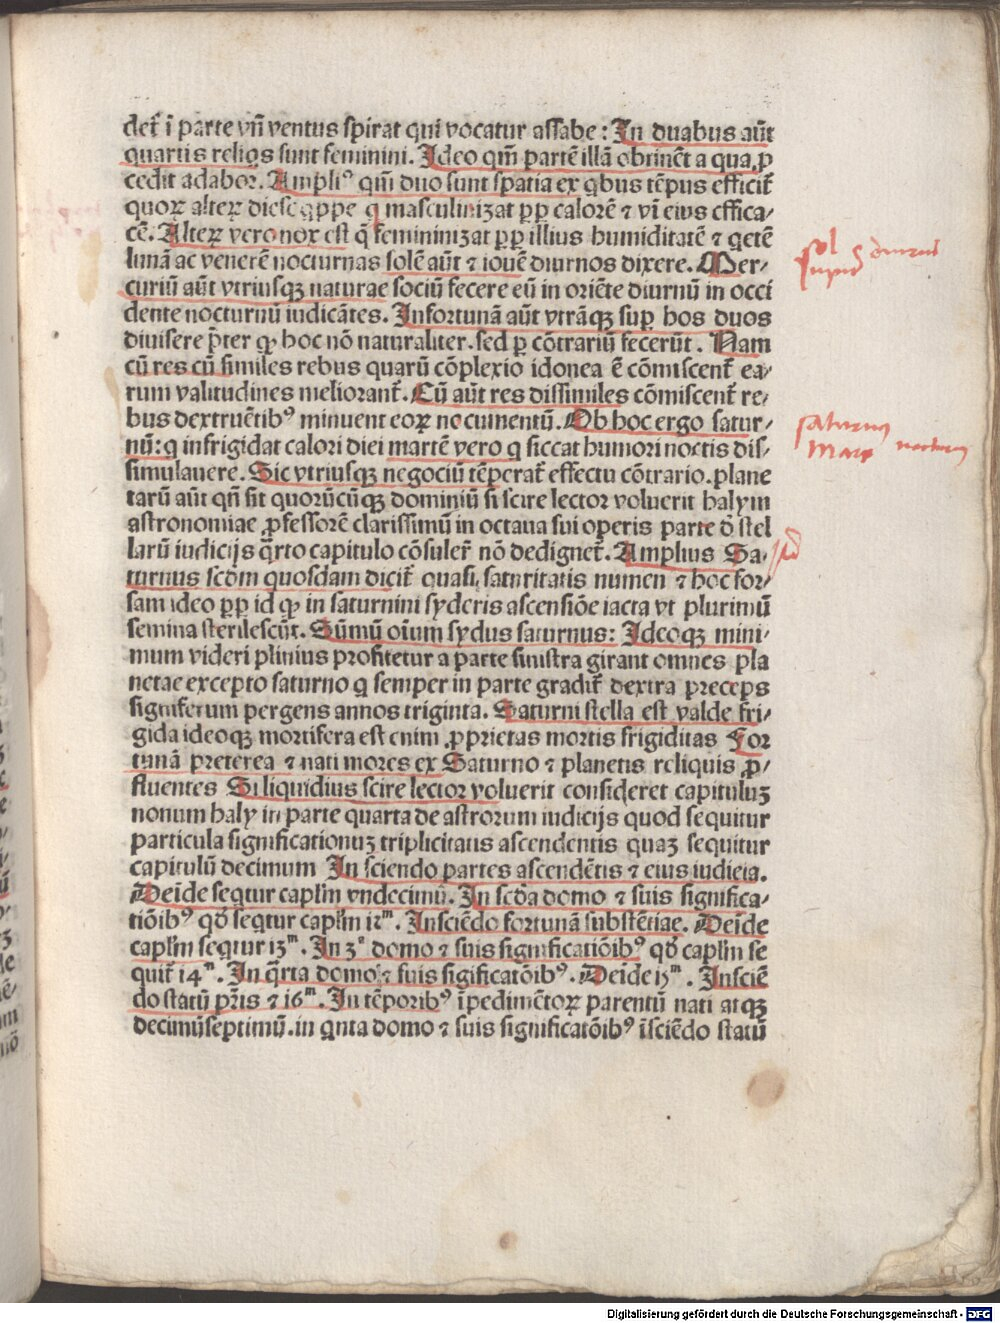 det̄ ī parte vn̄ ventus spirat qui vocatur assabe: In duabus aūt
quartis reliq̄s sunt feminini. Ideo qm̄ partē illā obtinēt a qua ꝓ
cedit adabor. Ampliꝰ qm̄ duo sunt spatia ex qbus tēpus efficit̄
quoꝝ alteꝝ dies ē qppe q̄ masculinizat ꝓp calorē ⁊ vī eius effica-
cē. Alteꝝ vero nox est q̄ femininizat ꝓp illius humiditatē ⁊ qetē
lunā ac venerē nocturnas solē aūt ⁊ iouē diurnos dixere. Mer-
curiū aūt vtriusqꝫ naturae sociū fecere eū in oriēte diurnū in occi
dente nocturnū iudicātes. Infortunā aūt vtrāqꝫ suꝑ hos duos
diuisere p̄ter qꝙ hoc nō naturaliter. sed ꝑ cōtrariū fecerūt. Nam
cū res cū similes rebus quarū cōplexio idonea ē cōmiscent̄ ea-
rum valitudines meliorant̄. Cū aūt res dissimiles cōmiscent̄ re-
bus dextruētibꝰ minuent eoꝝ nocumentū. Ob hoc ergo satur-
nū: q infrigidat calori diei martē vero q siccat humori noctis dis-
simulauere. Sic vtriusqꝫ negociū tēperat̄ effectu cōtrario. plane
tarū aūt qn̄ sit quorūcūqꝫ dominiū si scire lector voluerit halym
astronomiae ꝓfessorē clarissimū in octaua sui operis parte d̄ stel
larū iudicijs q̄rto capitulo cōsuler̄ nō dedignet̄. Amplius Sa-
turnus scd̄m quosdam dicit̄ quasi saturitatis numen ⁊ hoc for-
sam ideo ꝓp id ꝙ in saturnini syderis ascensiōe iacta vt plurimū
semina sterilescūt. Sūmū oīum sydus saturnus: Ideoqꝫ mini-
mum videri plinius profitetur a parte sinistra girant omnes pla
netae excepto saturno q semper in parte gradit̄ dextra preceps
signiferum pergens annos triginta. Saturni stella est valde fri-
gida ideoqꝫ mortifera est enim ꝓprietas mortis frigiditas For
tunā preterea ⁊ nati mores ex Saturno ⁊ planetis reliquis ꝓ-
fluentes Si liquidius scire lector voluerit consideret capituluꝫ
nonum haly in parte quarta de astrorum iudicijs quod sequitur
particula significationuꝫ triplicitatis ascendentis quaꝫ sequitur
capitulū decimum In sciendo partes ascendētis ⁊ eius iudicia.
Deīde seqtur caplm̄ vndecimū. In scd̄a domo ⁊ suis significa-
tiōibꝰ qd̄ seqtur caplm̄ 12ᵐ. In sciēdo fortunā substētiae. Deīde
caplm̄ seqtur 13ᵐ. In 3ᵃ domo ⁊ suis significatiōibꝰ qd̄ caplm̄ se
quit̄ 14ᵐ. In q̄rta domo ⁊ suis sigificatōibꝰ. Deīde 15ᵐ. In sciē
do statū pr̄is ⁊ 16ᵐ. In tēporibꝰ īpedimētoꝝ parentū nati atqꝫ
decimūseptimū. in qnta domo ⁊ suis significatōibꝰ īsciēdo statū
sol
diurni
saturnus
mars nocturni
Digitalisierung gefördert durch die Deutsche Forschungsgemeinschaft - DFG